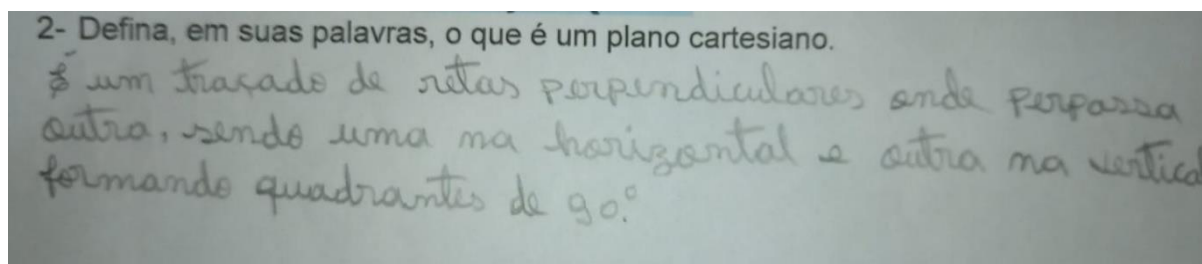 2- Defina, em suas palavras, o que é um plano cartesiano.
É um traçado de retas perpendiculares onde perpassa
outra, sendo uma na horizontal e outra na vertical
formando quadrantes de 90°.